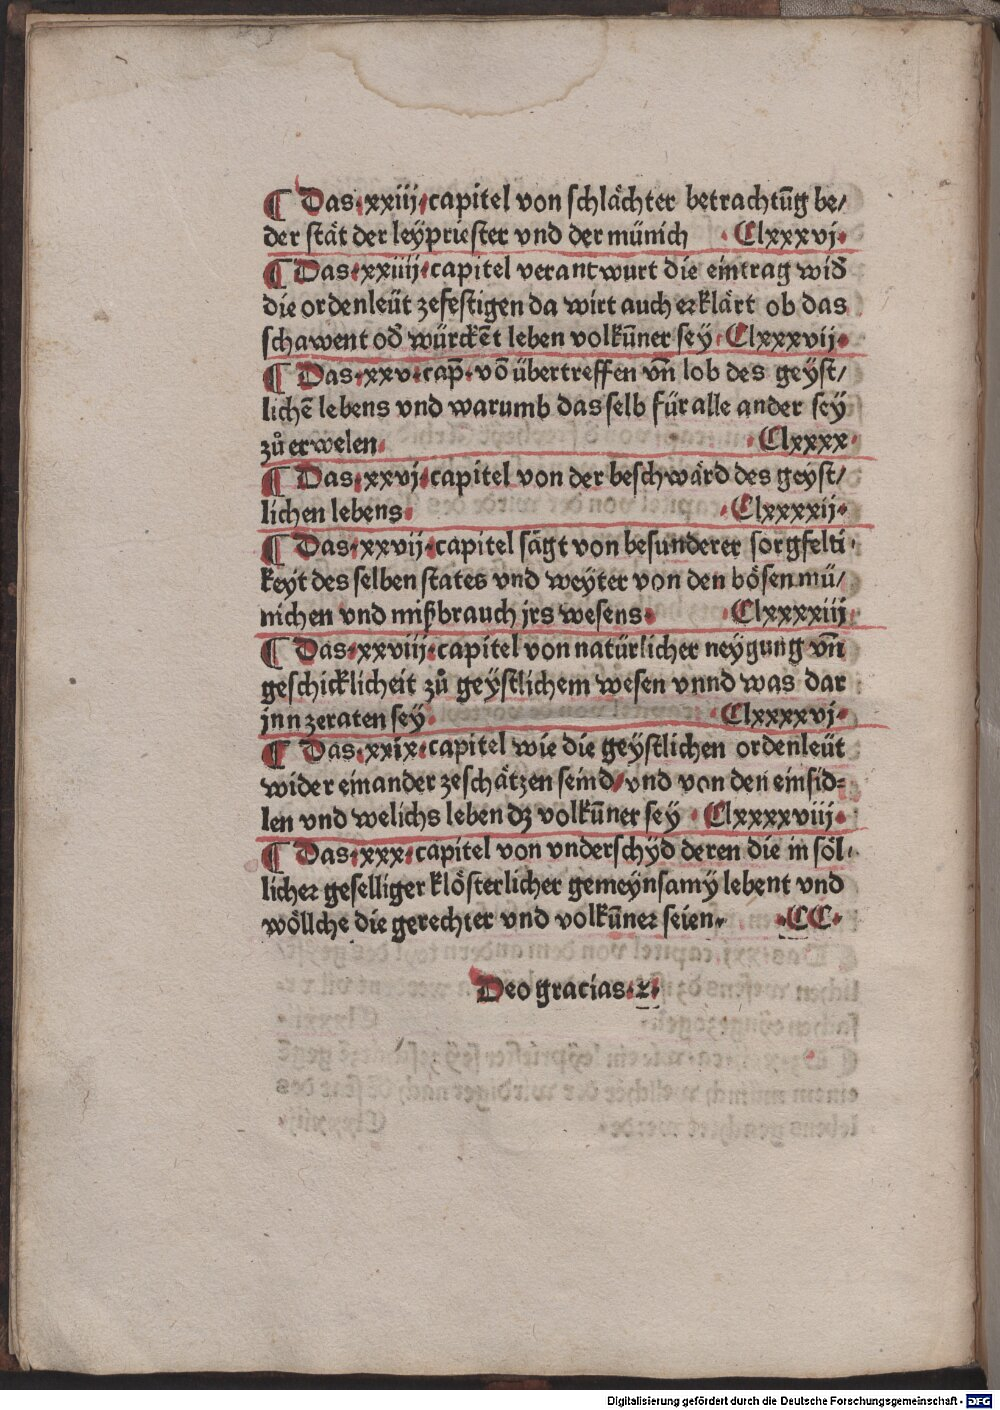 ¶ Das·xxiij·capitel von schlächter betrachtūg be/
der stät der leÿpriester vnd der münich ·Clxxxvj·
¶ Das·xxiiij·capitel verantwurt die eintrag wid̄
die ordenleüt zefestigen da wirt auch erklärt ob das
schawent od̄ würckēt leben volkūner sey·Clxxxvij·
¶ Das·xxv·cap̄·vō übertreffen vn̄ lob des geÿst/
lichē lebens vnd warumb das selb für alle ander seÿ
zů erwelen· ·Clxxxx·
¶ Das·xxvj·capitel von der beschwärd des geyst/
lichen lebens· ·Clxxxxij·
¶ Das·xxvij·capitel sägt von besunderer sorgfelti·
keyt des selben states vnd weÿter von den bösen mü/
nichen vnd mißbrauch jrs wesens· Clxxxxiij
¶ Das·xxviij·capitel von natürlicher neÿgung vn̄
geschicklicheit zů geÿstlichem wesen vnnd was dar
jnn zeraten seÿ· ·Clxxxxvj·
¶ Das·xxix·capitel wie die geÿstlichen ordenleüt
wider einander zeschätzen seind/vnd von den einsid=
len vnd welichs leben dz volkūner sey ·Clxxxxviij·
¶ Das·xxx·capitel von vnderschÿd deren die in söl·
licher geselliger klösterlicher gemeÿnsamÿ lebent vnd
wöllche die gerechter vnd volkūner seien· ·CC·
Deo gracias·ꝛ·
Digitalisierung gefördert durch die Deutsche Forschungsgemeinschaft - DFG